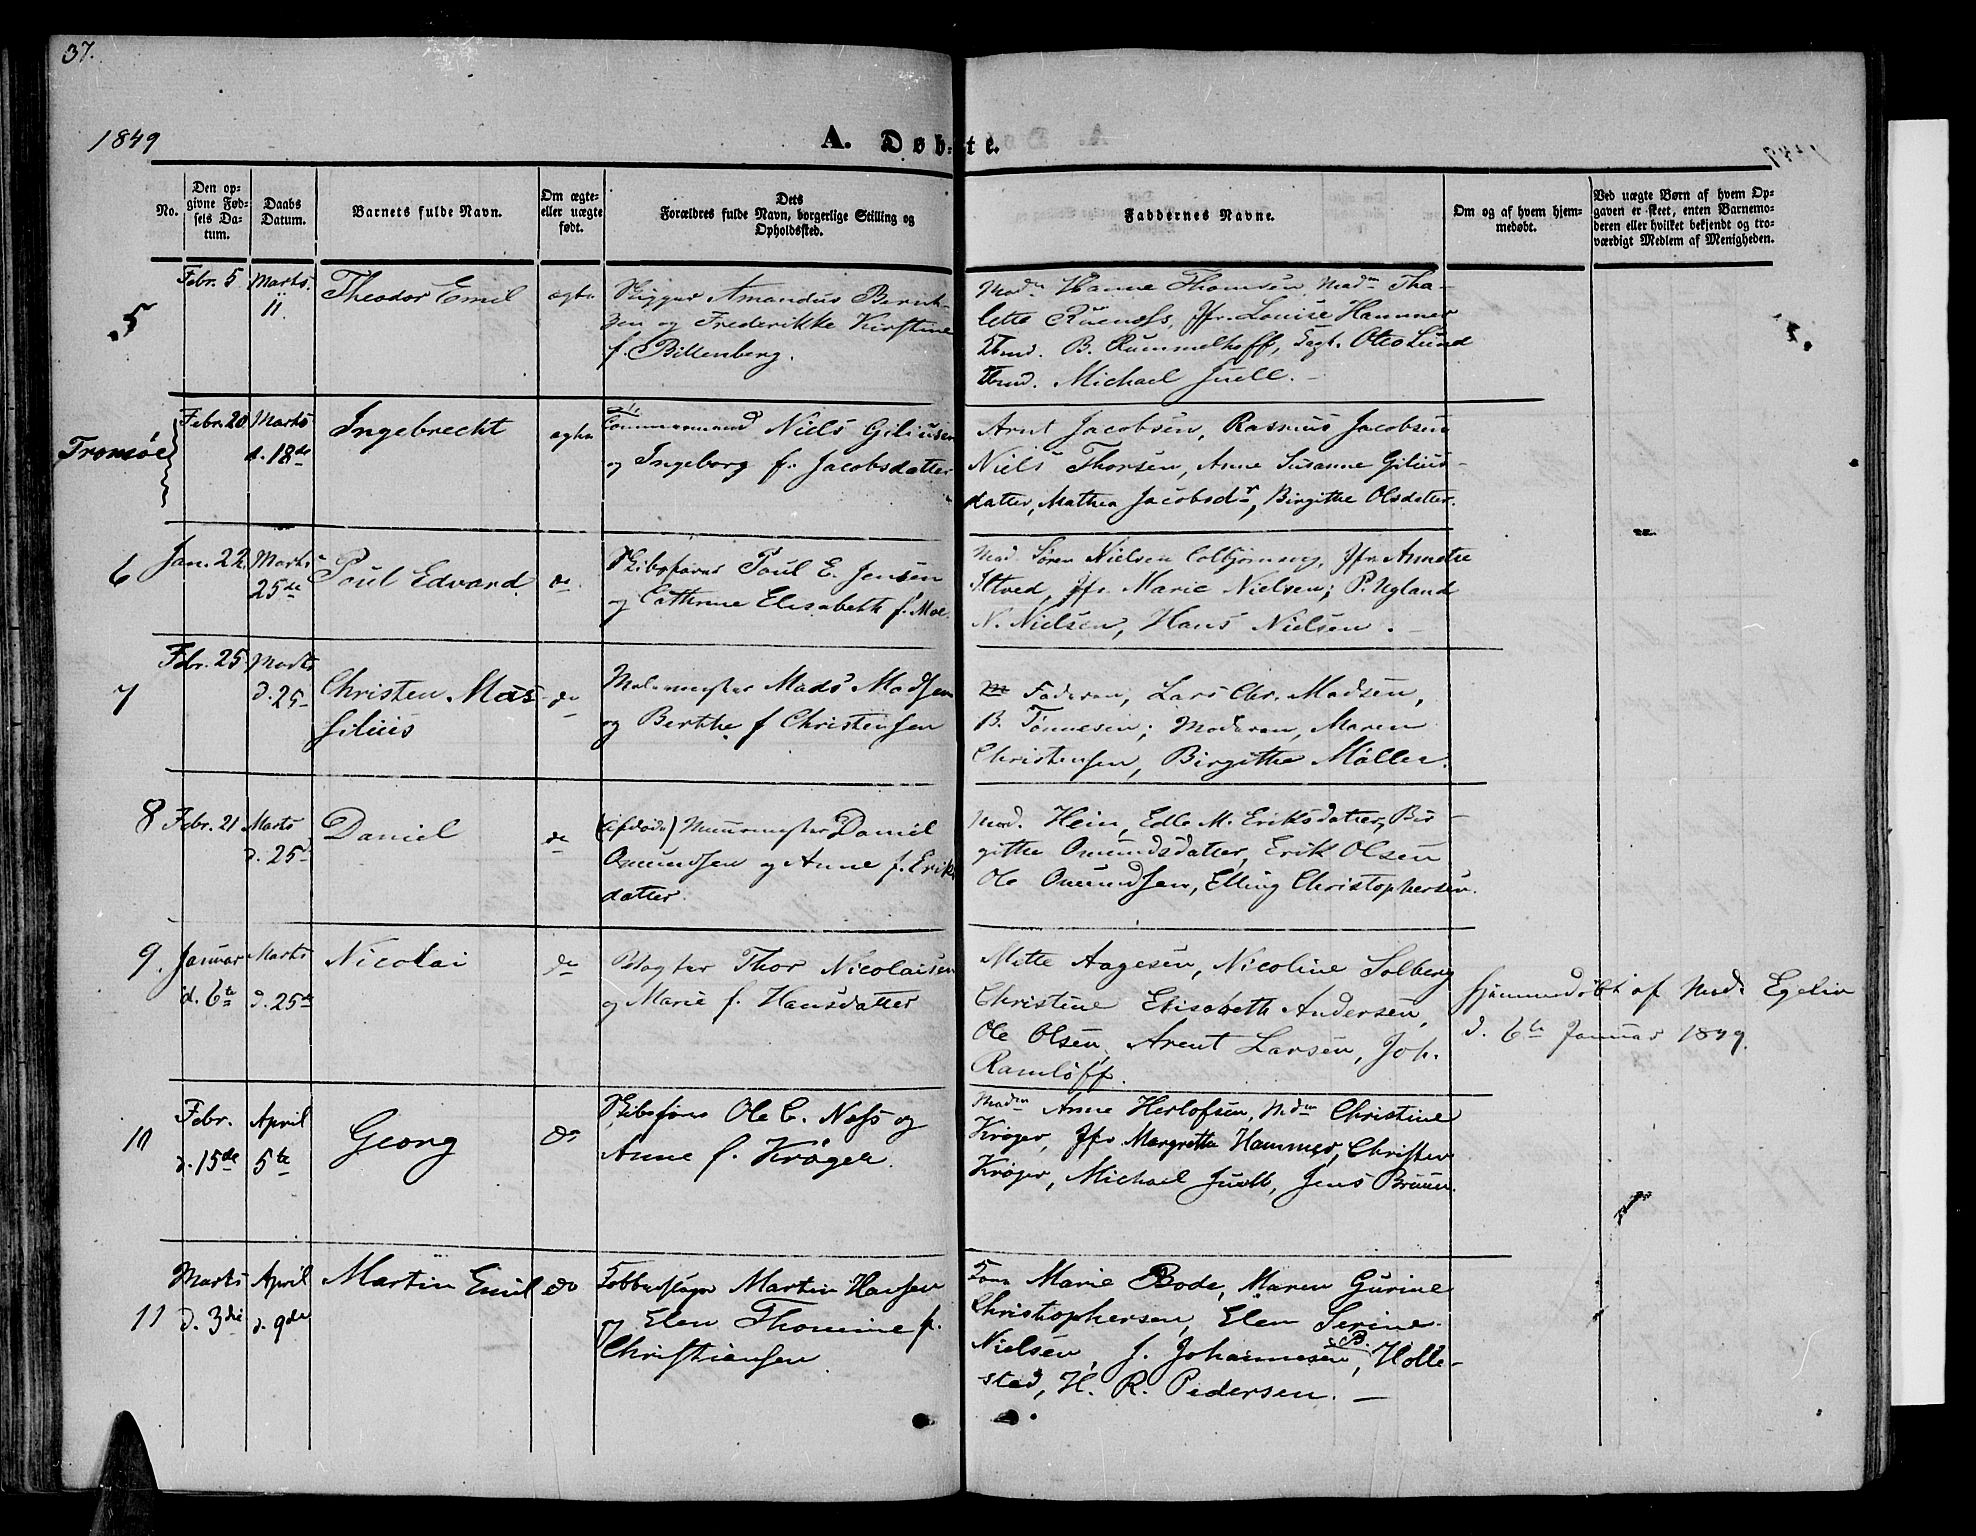 37.
1849
A. Døbte.
No.
Den op-
givne Fød-
sels Da-
tum.
Daabs
Datum.
Barnets fulde Navn.
Om ægte-
eller uægte
født.
Dets
Forældres fulde Navn, borgerlige Stilling og
Opholdssted.
Faddernes Navne.
Om og af hvem hjem-
medøbt.
Ved uægte Børn af hvem Op-
gaven er skeet, enten Barnemo-
deren eller hvilket bekjendt og tro-
værdigt Medlem af Menigheden.
5
Febr. 5
Marts
11.
Theodor Emil
ægte
Rigger Amandus Bernt-
zen og Frederikke Kirstine
f. Billenberg.
Madm Hanne Thomsen, Madm Tha-
lette Ruenæss, Jfr. Louise Hammer
B. Rummelhoff, Otto Lund
Michael Juell.
Tromsøe
Febr. 20
Marts
d. 18de
Ingebrecht
ægte
Tømmermand Niels Giliusen
og Ingeborg f. Jacobsdatter
Arnt Jacobsen, Rasmus Jacobsen
Niels Thorsen, Anne Susanne Gilius-
datter, Mathea Jacobsdr, Birgithe Olsdatter.
6
Jan. 22
Marts
25de
Poul Edvard.
do
Skibsfører Poul E. Jensen
og Cathrine Elisabeth f. Moe.
Mad. Søren Nielsen Colbjørnsvig, Jfr. Annette
Iltved, Jfr. Marie Nielsen; P. Ugland
N. Nielsen, Hans Nielsen.
7
Febr. 25
Marts
d. 25
Christen Mas-
silius
do
Malermester Mads Madsen
og Berthe f Christensen
Faderen, Lars Chr. Madsen,
B. Tønnesen; Moderen, Maren
Christensen, Birgithe Møller.
8
Febr. 21
Marts
d. 25
Daniel
do
(afdøde) Muurmester Daniel
Omundsen og Anne f. Eriks
datter.
Mad. Hein, Edle M. Eriksdatter, Bir-
githe Omundsdatter, Erik Olsen
Ole Omundsen, Elling Christophersen.
9.
Januar
d. 6te
Marts
d. 25de
Nicolai
do
Vægter Thor Nicolaisen
og Marie f. Hansdatter
Mette Aagesen, Nicoline Solberg
Christine Elisabeth Andersen,
Ole Olsen, Arent Larsen, Joh.
Ramløff.
hjemmedøbt af Mad. Egelie
d. 6te Januar 1849.
10
Febr.
d. 15de
April
5te
Georg
do
Skibsfører Ole C. Næss og
Anne f. Krøger.
Madm Anne Herlofsen, Mdm Christine
Krøger, Jfr Margretha Hammer, Christen
Krøger, Michael Juell, Jens Bruun.
11
Marts
d. 3die
April
d. 9de
Martin Emil
do
Martin Hansen
og Elen Thomine f.
Christiansen
Marie Bode, Maren Gurine
Christophersen, Elen Serine
Nielsen, J. Johannesen, B. Holle-
sted, H. R. Pedersen.